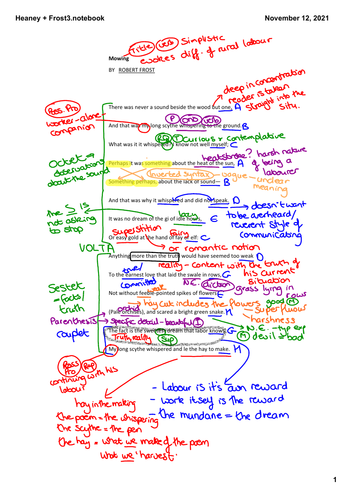 Heaney + Frost3.notebook
November 12, 2021
Title verb simplistic
evokes diff. of rural labour
Mowing
BY ROBERT FROST
deep in concentration
reader is taken
straight into the
situ.
Poss. Pro
worker - alone -
companion
There was never a sound beside the wood but one, A
P ono verb
And that was my long scythe whispering to the ground. B
Rep Q curious + contemplative
What was it it whispered? I know not well myself; C
heatstroke? harsh nature
of being a
labourer
Octet →
observations
about the sound
Perhaps it was something about the heat of the sun, A
Inverted Syntax - vague - unclear
meaning
Something, perhaps, about the lack of sound— B
And that was why it whispered and did not speak. D
→ doesn't want
to be overheard/
reverent style of
communicating
the S is
not asking
to stop
lazy
It was no dream of the gift of idle hours, E
superstition Fairy
Or easy gold at the hand of fay or elf: C
→ or romantic notion
VOLTA
Anything more than the truth would have seemed too weak D
reality - content with the truth of
his current
situation
over/
To the earnest love that laid the swale in rows, F
committed
N.E. diction grass lying in
rows
Sestet
- facts/
truth
Not without feeble-pointed spikes of flowers E
→ hay cut includes the flowers good M
(Pale orchises), and scared a bright green snake. H
superfluous
harshness
Parenthesis → specific detail - beautiful I
Couplet
The fact is the sweetest dream that labor knows. G
→ N.E. - typ exp
M devil + bad
Truth, reality Sup
My long scythe whispered and left the hay to make. H
Poss Pro Rep
continuing with his
labour
hay in the making
the poem = the whispering
the scythe = the pen
the hay = what we make of the poem
what we 'harvest'.
- Labour is it's own reward
- work itself is the reward
- the mundane = the dream
1